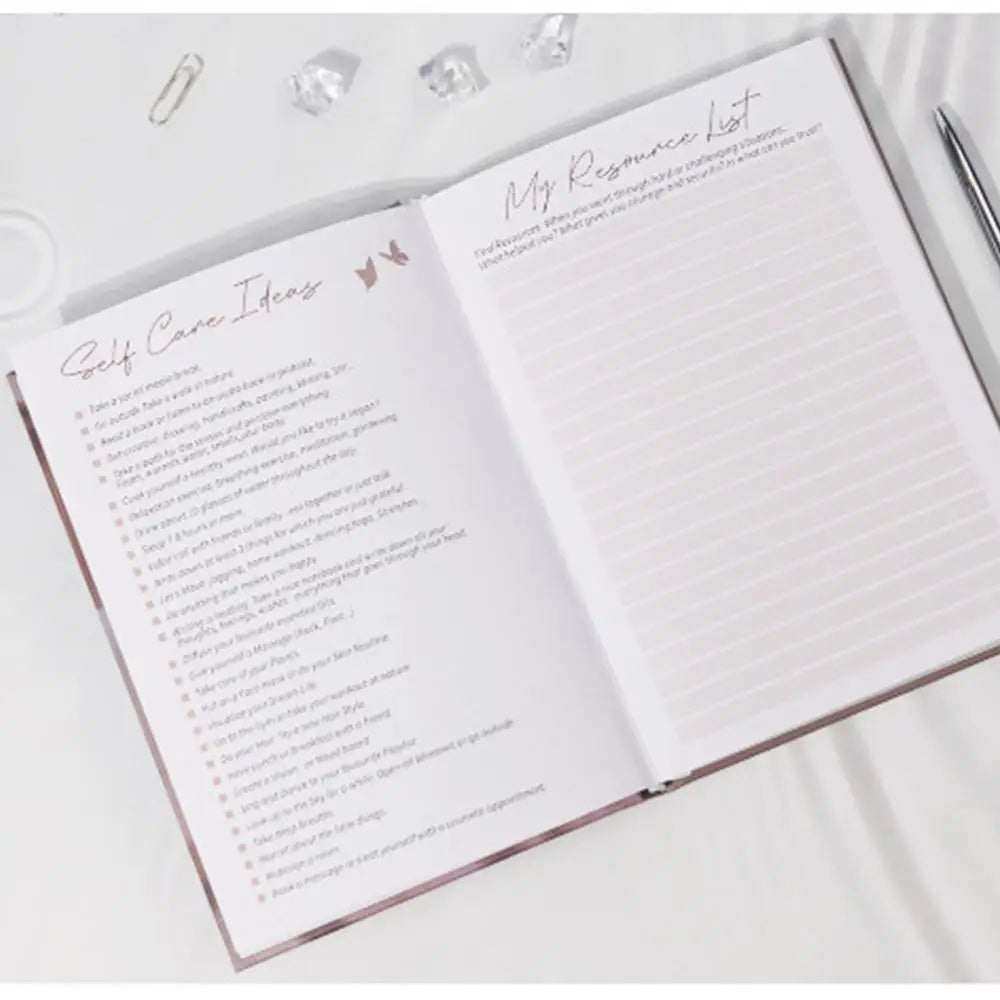 Self Care Ideas
Take a social media break.
Go outside. Take a walk in nature
Read a book or listen to an audio book or podcast.
Get creative: drawing, handicrafts, painting, writing, DIY...
Take a bath for the senses and perceive everything:
Foam, warmth, water, smells, your body
Cook yourself a healthy meal. Would you like to try it vegan?
Relaxation exercise, Breathing exercise, meditation, gardening
Drink about 10 glasses of water throughout the day.
Sleep 7-8 hours or more.
Video call with friends or family, eat together or just talk
Write down at least 3 things for which you are just grateful.
Let's Move: jogging, home workout, dancing, Yoga, Stretches
Do anything that makes you happy
Writing is healing. Take a nice notebook and write down all your
thoughts, feelings, wishes, everything that goes through your head.
Diffuse your favourite essential Oils
Give yourself a Massage (Back, Foot...)
Take care of your Plants.
Put on a Face mask or do your Skin Routine
Visualise your Dream Life
Go to the Gym or take your workout at nature
Do your Hair. Try a new Hair Style.
Have Lunch or Breakfast with a Friend
Create a Vision- or Mood board
Sing and Dance to your favourite Playlist
Look up to the Sky for a while. Open all Windows or go outside
Take deep Breaths
about the little things.
Redesign a room.
Book a massage or treat yourself with a cosmetic appointment.
My Resource List
Find Resources: When you went through hard or challenging situations,
What helped you? What gives you courage and security? In what can you trust?